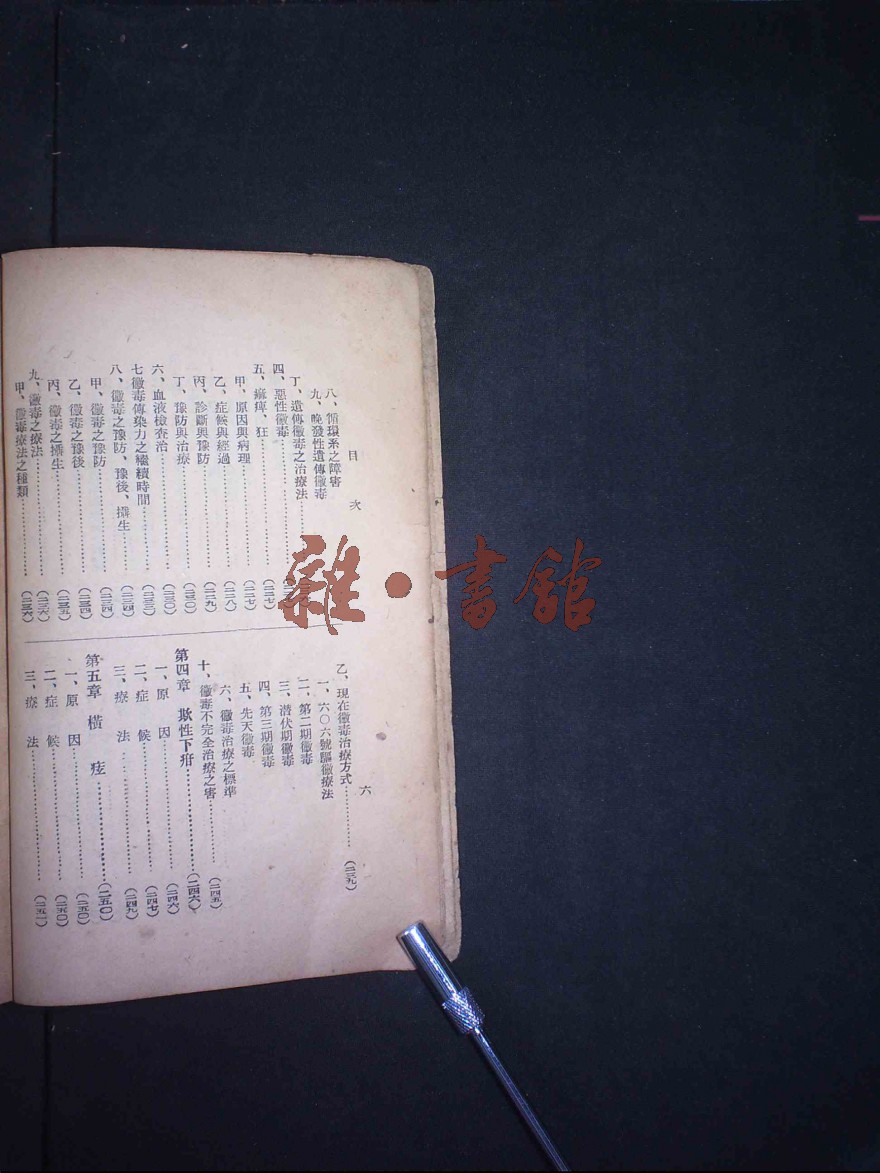 目次
六
八、循環系之障害
九、晚發性遺傳黴毒
丁、遺傳黴毒之治療法
四、惡性黴毒
五、痲痺、狂……(二二七)
甲、原因與病理……(二二七)
乙、症候與經過……(二二八)
丙、診斷與豫防……(二二九)
丁、豫防與治療……(二三〇)
六、血液檢查治……(二三〇)
七黴毒傳染力之繼續時間……(二三三)
八、黴毒之豫防、豫後、攝生……(二三四)
甲、黴毒之豫防……(二三四)
乙、黴毒之豫後……(二三四)
丙、黴毒之攝生……(二三五)
九、黴毒之療法……(二三六)
甲、黴毒療法之種類……(二三六)
乙、現在黴毒治療方式……(二三九)
一、六〇六號驅黴療法
二、第二期黴毒
三、潛伏期黴毒
四、第三期黴毒
五、先天黴毒
六、黴毒治療之標準
十、黴毒不完全治療之害……(二四五)
第四章 欺性下疳……(二四六)
一、原因……(二四六)
二、症候……(二四七)
三、療法……(二四九)
第五章 橫痃……(二五〇)
一、原因……(二五〇)
二、症候……(二五〇)
三、療法……(二五一)
雜·書館